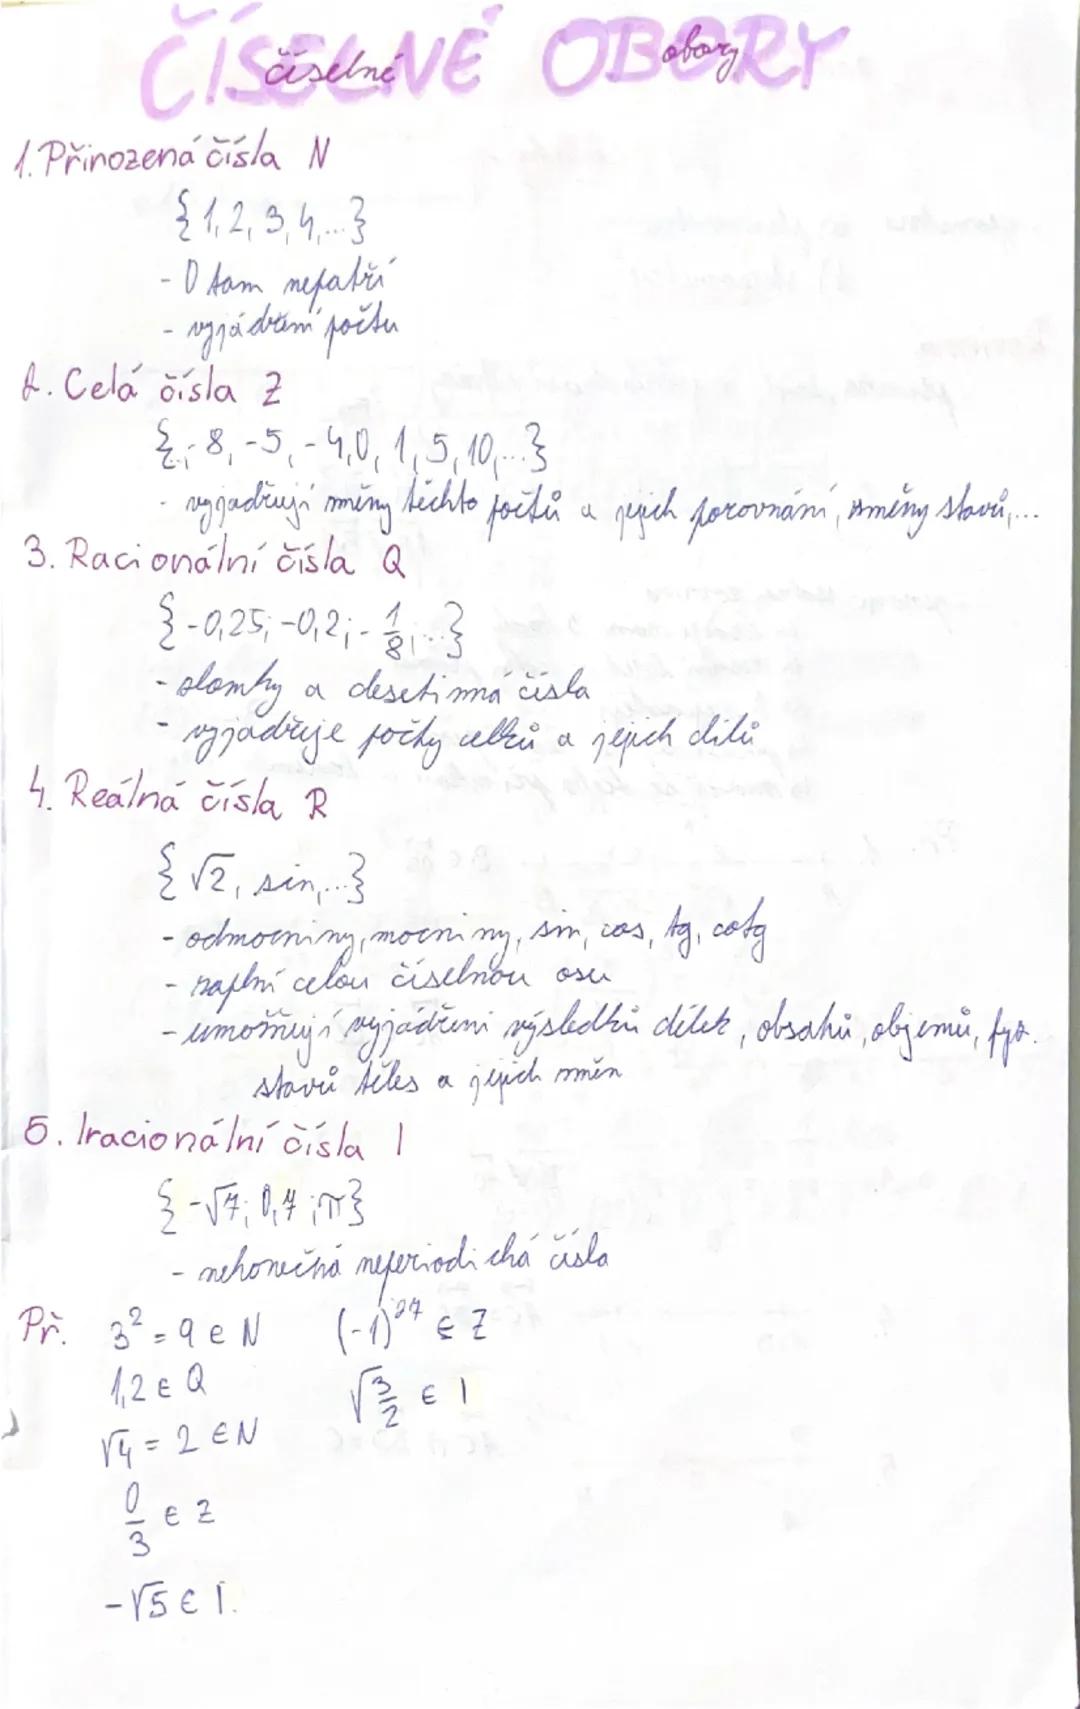 ČÍSELNÉ OBORY
číselné obory
1. Přirozená čísla N
{1, 2, 3, 4, ...}
- 0 tam nepatří
- vyjádření počtu
2. Celá čísla Z
{..., -8, -5, -4, 0, 1, 5, 10, ...}
- vyjadřují změny těchto počtů a jejich porovnání, změny stavů, ...
3. Racionální čísla Q
{-0,25; -0,2; -1/8; ...}
- zlomky a desetinná čísla
- vyjadřuje počty celků a jejich dílů
4. Reálná čísla R
{√2, sin, ...}
- odmocniny, mocniny, sin, cos, tg, cotg
- zaplní celou číselnou osu
- umožňují vyjádření výsledků délek, obsahů, objemů, fyz.
stavů těles a jejich změn
5. Iracionální čísla I
{-√7; 0,7; π}
- nekonečná neperiodická čísla
Př. 3² = 9 ∈ N (-1)²⁷ ∈ Z
1,2 ∈ Q √3/2 ∈ I
√4 = 2 ∈ N
0/3 ∈ Z
-√5 ∈ I.